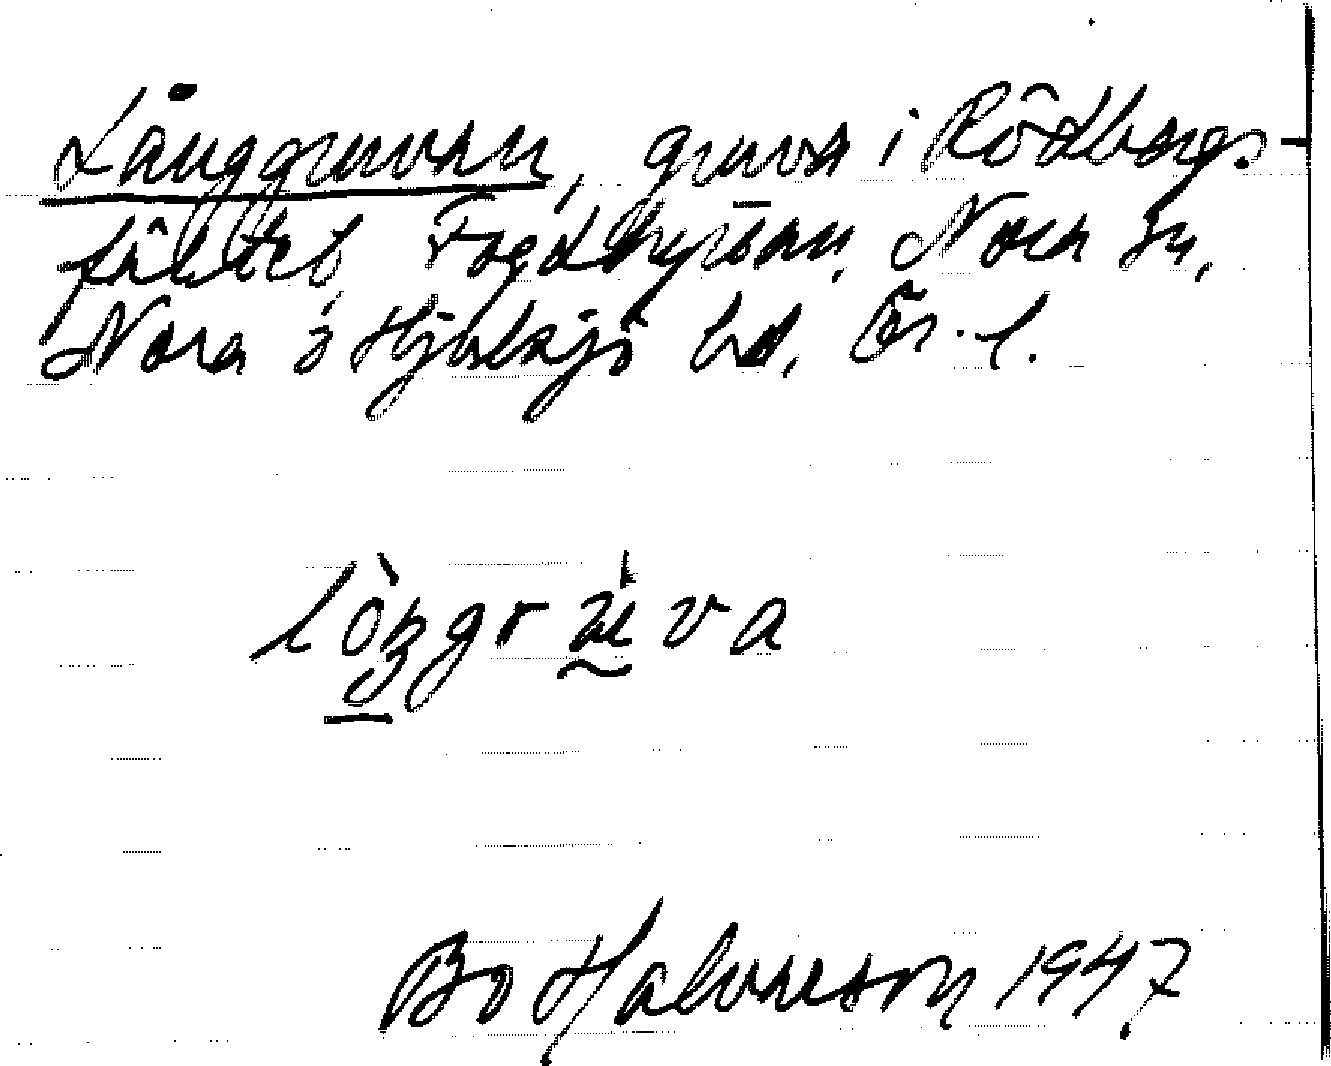 Långgruvan, gruva i Rödbergs-
fältet, Fogdhyttan, Nora sn,
Nora o Hjulsjö hd, Ör. l.
lòŋgrʉ̀va
Bo Halvarson 1947